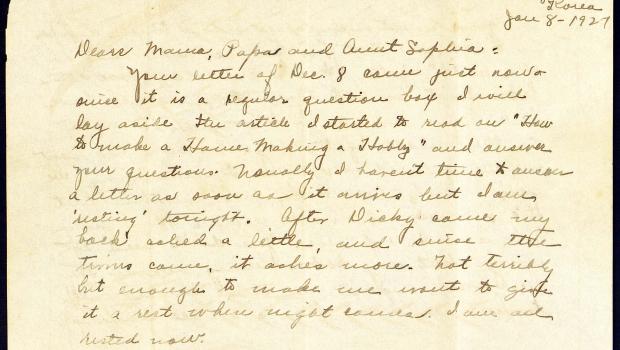 Korea
Jan 8-1927
Dear Mama, Papa and Aunt Sophia:
Your letter of Dec. 8 came just now &
since it is a regular question box I will
lay aside the article I started to read on "How
to make a Home Making a Hobby" and answer
your questions. Usually I havent time to answer
a letter as soon as it arrives but I am
'resting' tonight. After Dicky came my
back ached a little, and since the
twins came, it aches more. Not terribly
but enough to make me want to give
it a rest when night comes. I am all
rested now.